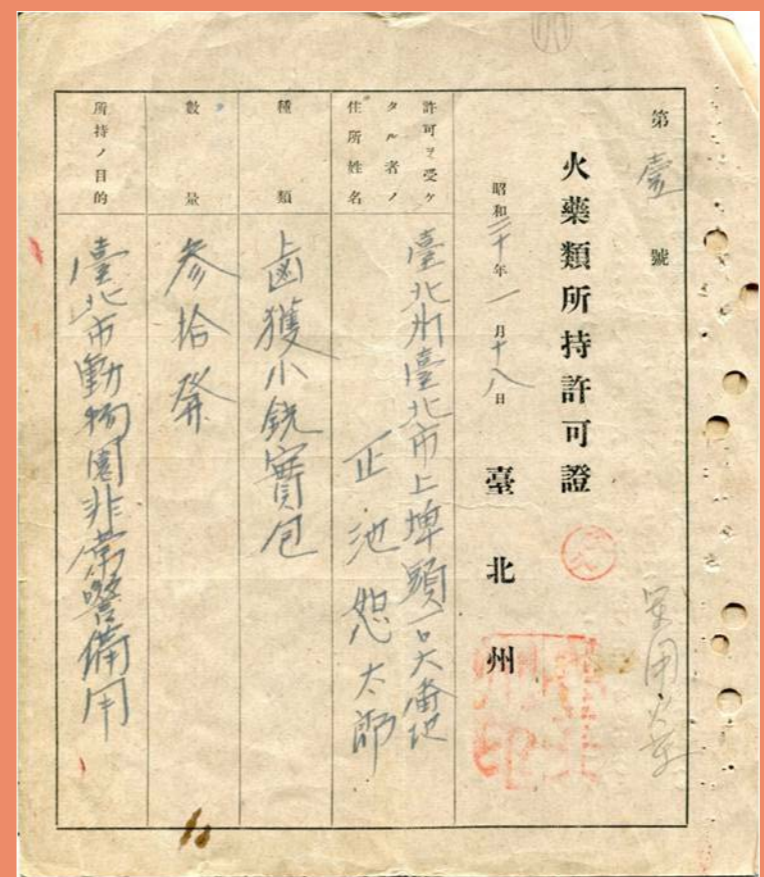 第壹號
火藥類所持許可證
昭和二十年一月十八日
臺北州
許可ヲ受ケ
タル者ノ
住所姓名
臺北州臺北市上埤頭一

正池恕太郎
種類
鹵獲小銃實包
數量
參拾發
所持ノ目的
臺北市動物園非常警備用
軍用火藥